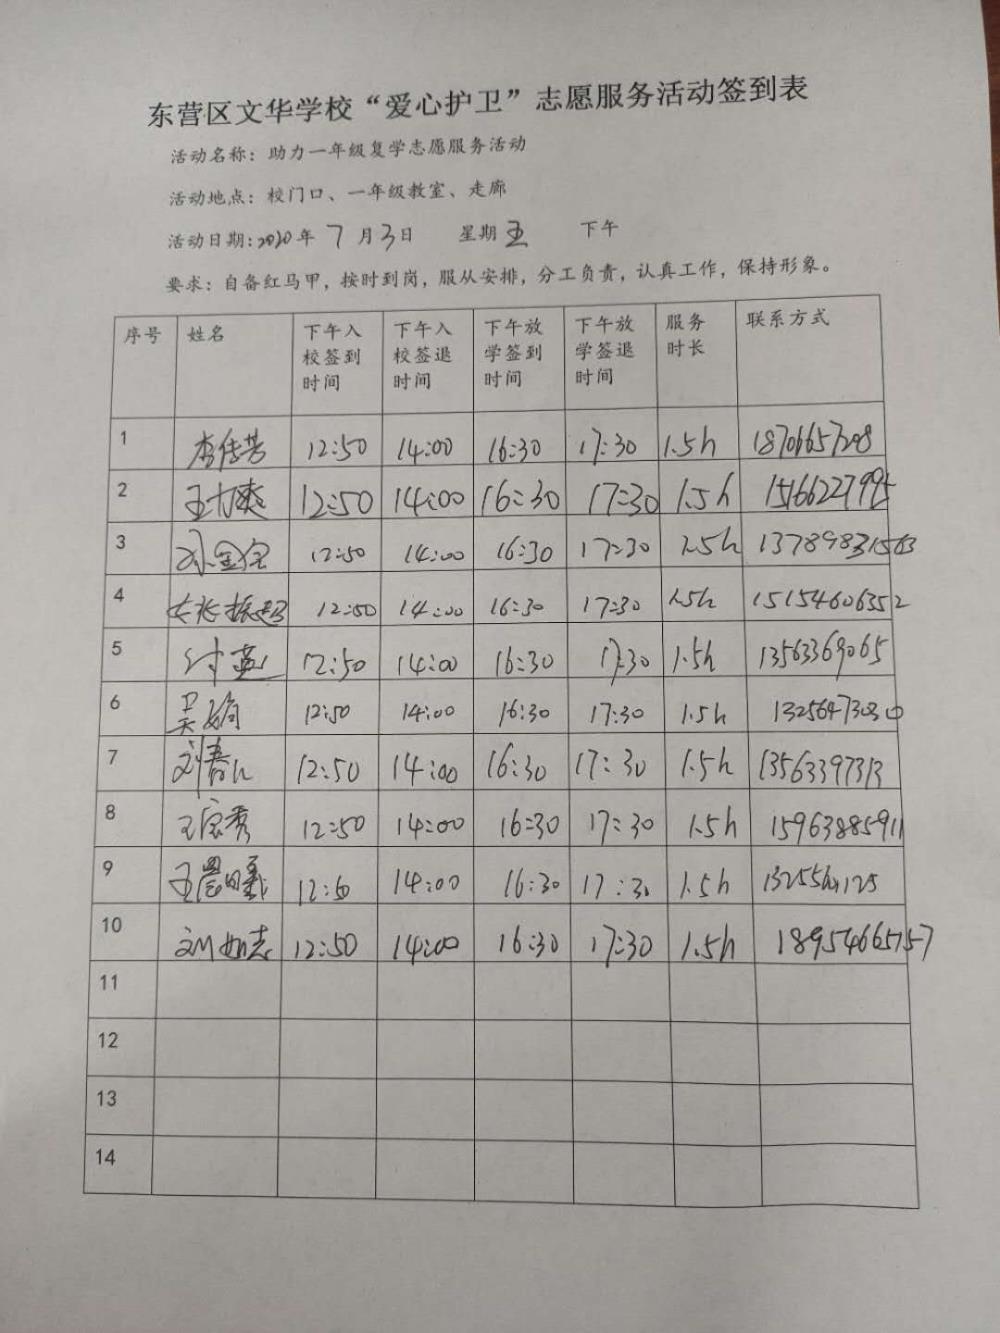 东营区文华学校“爱心护卫”志愿服务活动签到表
活动名称：助力一年级复学志愿服务活动
活动地点：校门口、一年级教室、走廊
活动日期：2020年 7 月 3日 星期 五 下午
要求：自备红马甲，按时到岗，服从安排，分工负责，认真工作，保持形象。
序号 姓名 下午入校签到时间 下午入校签退时间 下午放学签到时间 下午放学签退时间 服务时长 联系方式
1 李传芳 12:50 14:00 16:30 17:30 1.5h 18706657208
2 12:50 14:00 16:30 17:30 1.5h 15166227995
3 12:50 14:00 16:30 17:30 1.5h
4 12:50 14:00 16:30 17:30 1.5h 15154606352
5 付燕 12:50 14:00 16:30 17:30 1.5h 13563369065
6 吴娟 12:50 14:00 16:30 17:30 1.5h
7 12:50 14:00 16:30 17:30 1.5h 13563397313
8 12:50 14:00 16:30 17:30 1.5h 15963885911
9 王晨曦 12:50 14:00 16:30 17:30 1.5h
10 刘如志 12:50 14:00 16:30 17:30 1.5h 18954665757
11
12
13
14